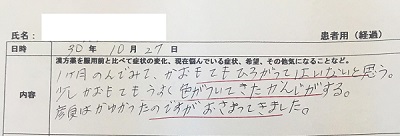 氏名： 患者用（経過）
日時 30年 10月 27日
漢方薬を服用前と比べて症状の変化、現在悩んでいる症状、希望、その他気になることなど。
内容
1ヶ月のんでみて、かおもてもひろがってはいないと思う。
少しかおもてもうすく色がついてきたかんじがする。
はかゆがったのですがおさまってきました。